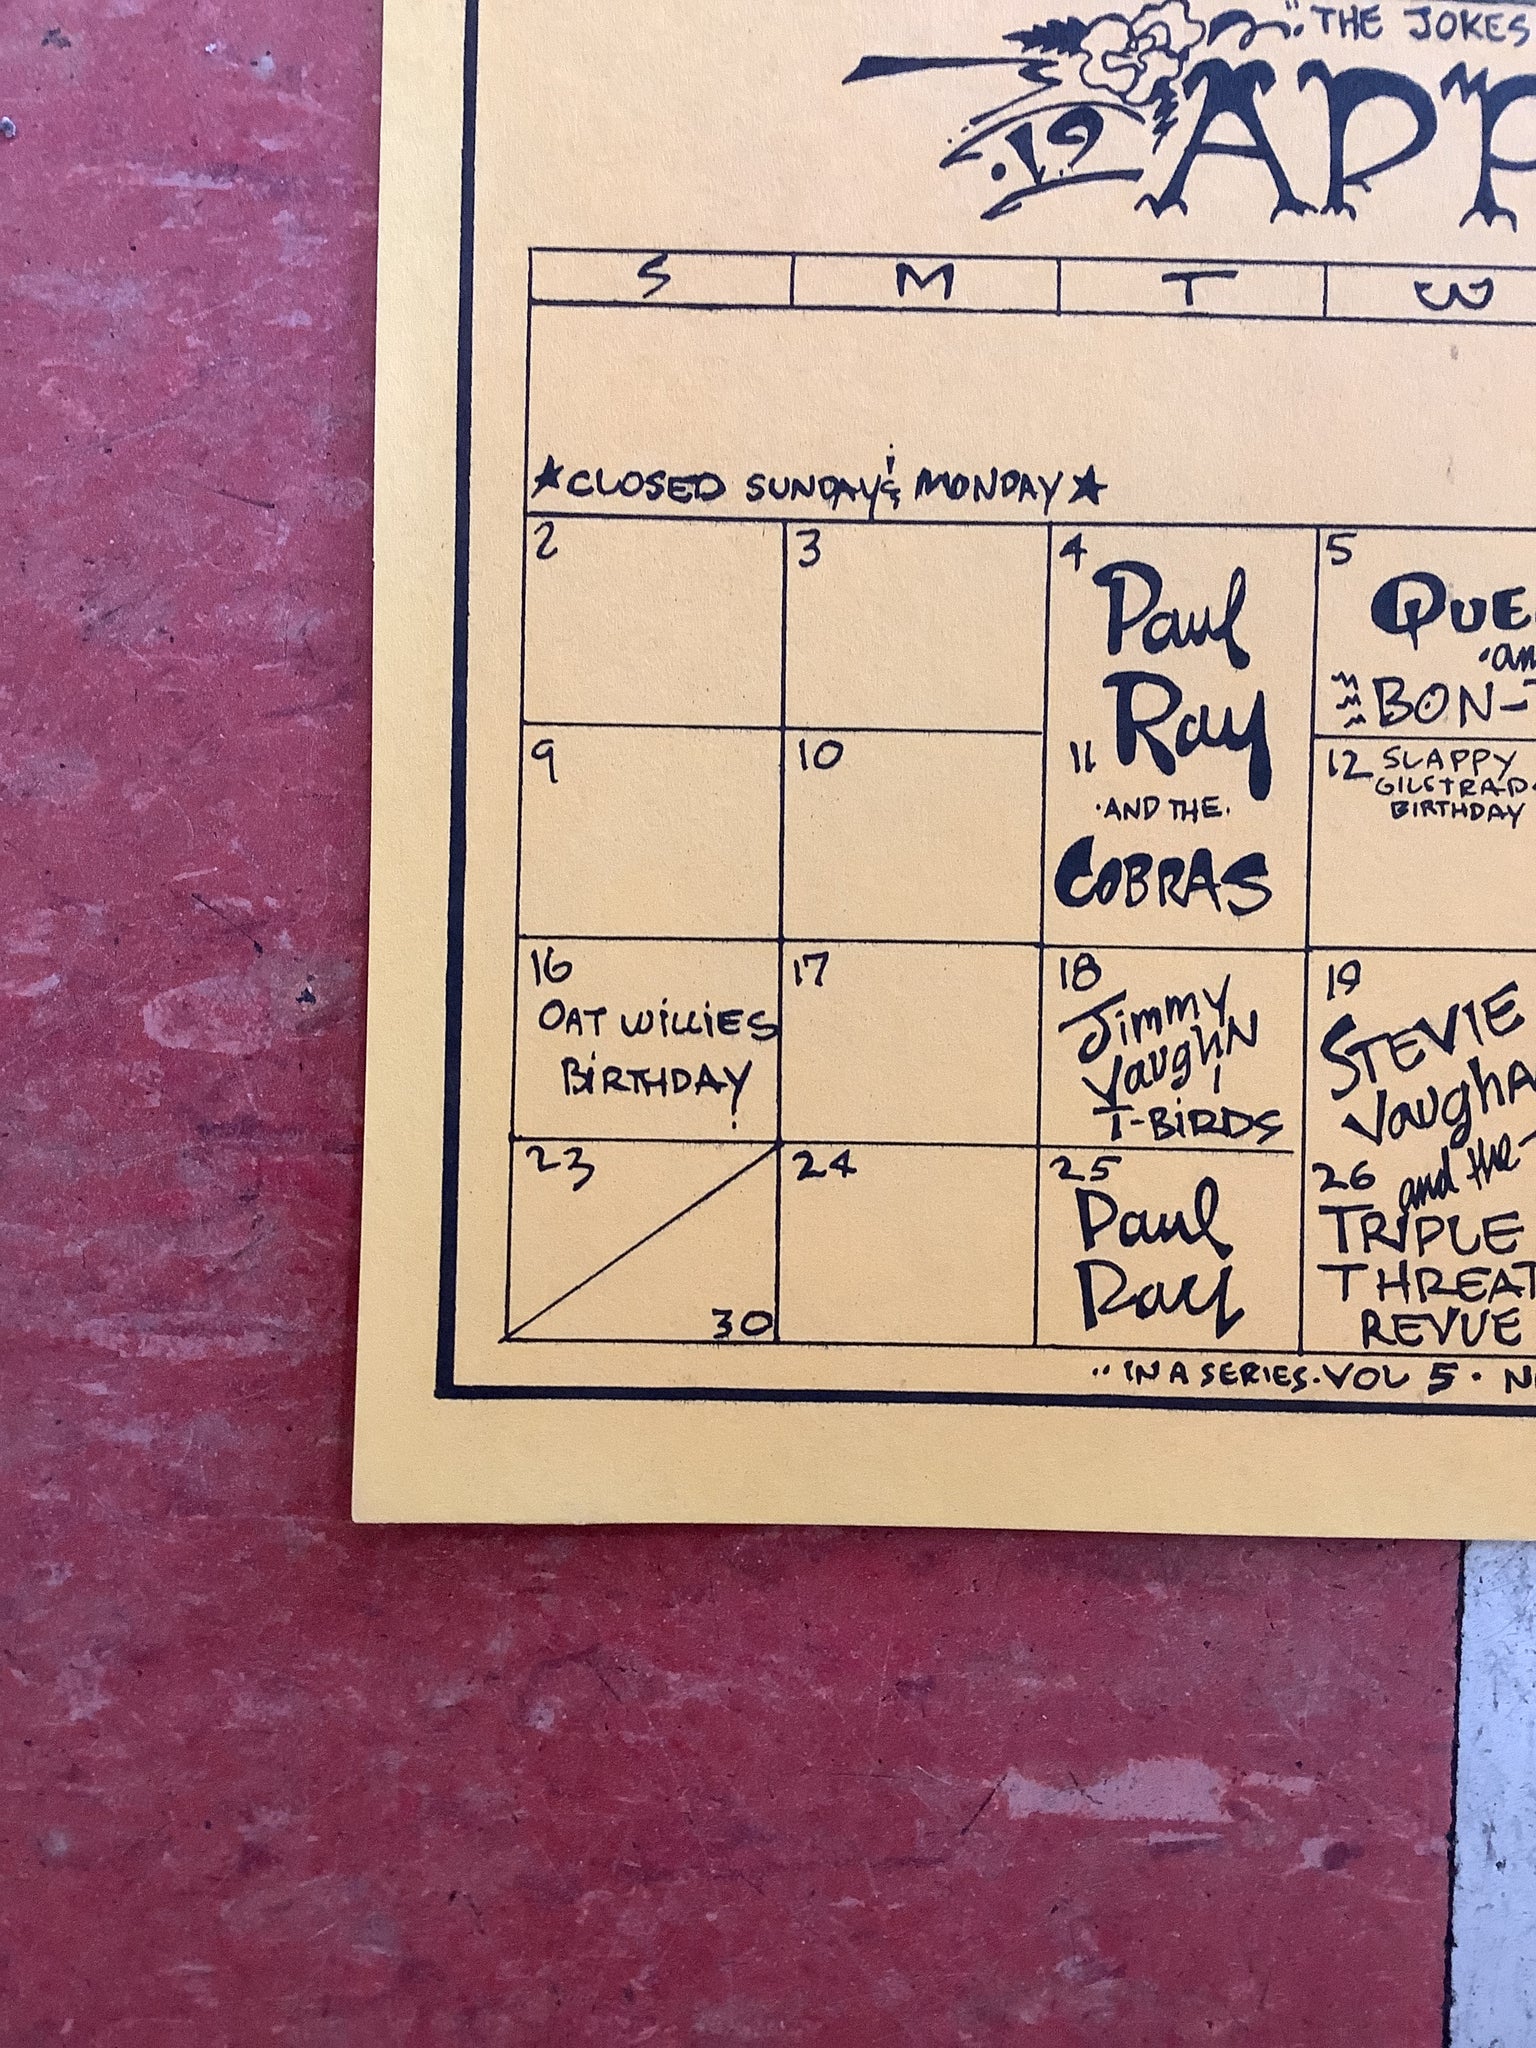 "THE JOKES
.19
APR
S M T W
★CLOSED SUNDAY & MONDAY★
2 3 4 5
Paul
Ray
·AND THE·
COBRAS
QUE
·an
BON-T
9 10 11 12
SLAPPY
GILSTRAP
BIRTHDAY
16 17 18 19
OAT WILLIES
BIRTHDAY!
Jimmy
Vaughn
T-BIRDS
STEVIE
Vaugha
and the
23 24 25 26
30
Paul
Ray
TRIPLE
THREAT
REVUE
··IN A SERIES·VOL 5·